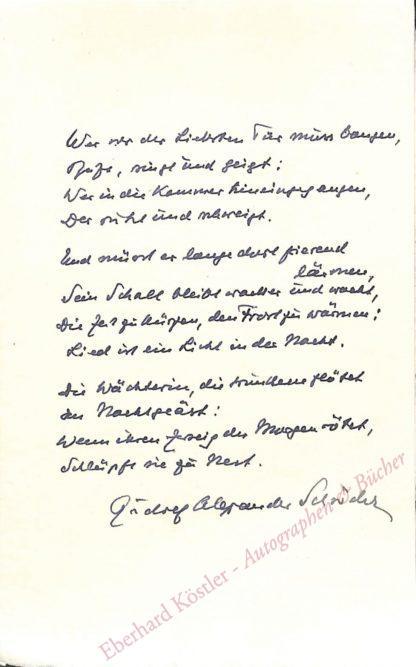 Wer vor der Liebsten Tür muss bangen,
steht, singt und geigt:
Wer in die Kammer hineingegangen,
Der ruht und schweigt.
Und müsst er lange dort frierend
lärmen,
Sein Schall bleibt wacker und wacht,
Die Zeit zu kürzen, den Frost zu wärmen:
Lied ist ein Licht in der Nacht.
Die Wächterin, die trunkene flötet
im Nachtgeäst:
Wenn ihren Zweig der Morgen rötet,
Schlüpft sie zu Nest.
Rudolf Alexander Schröder
Eberhard Köstler - Autographen & Bücher